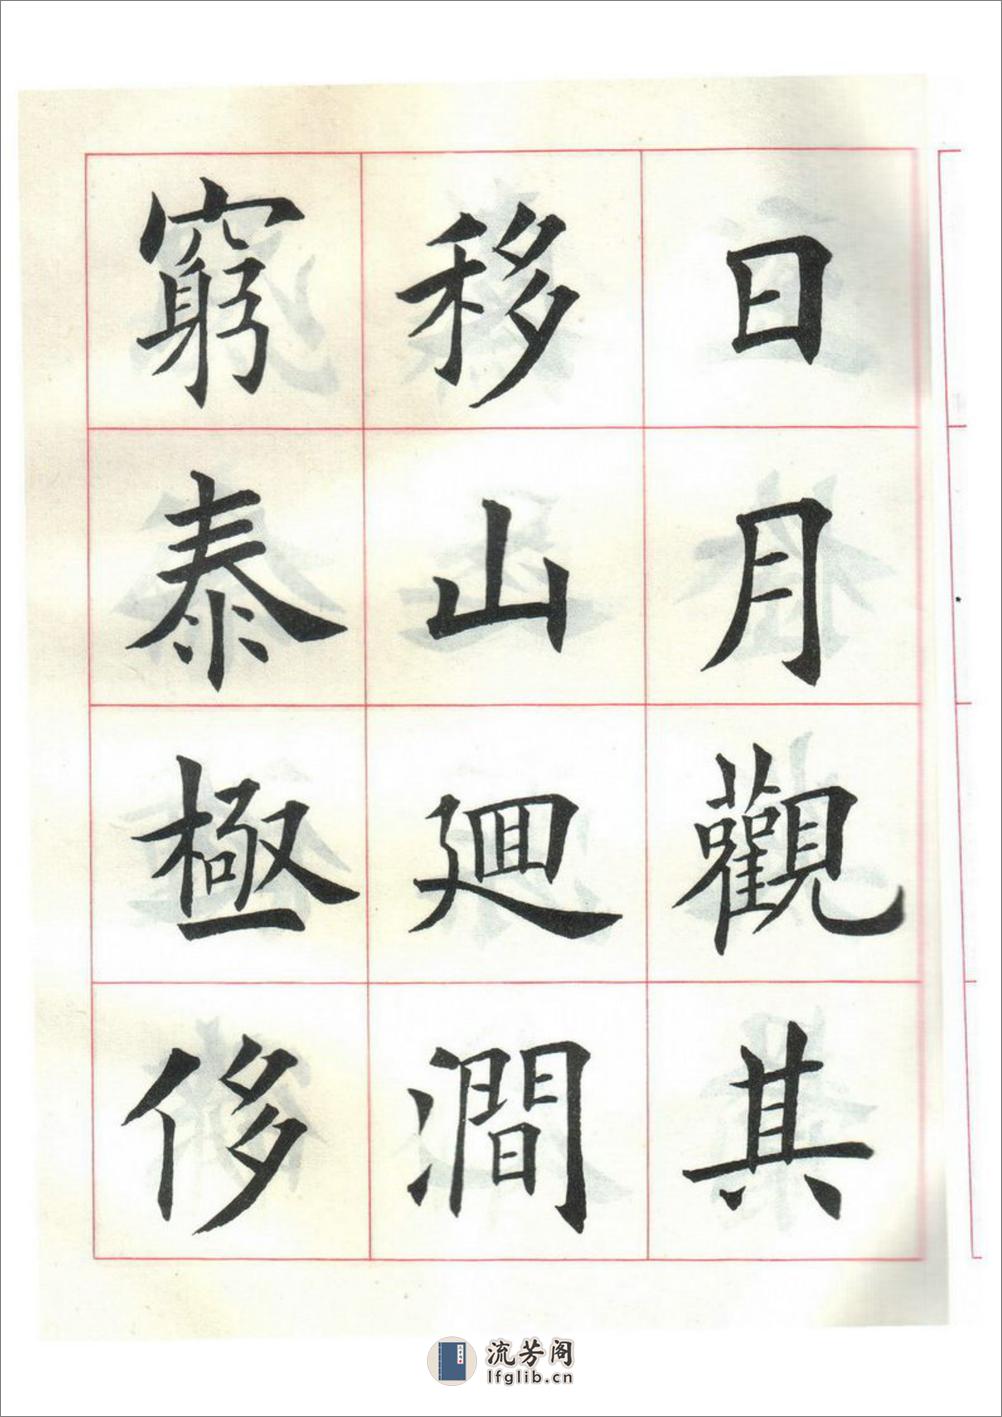 日月觀其
移山廻澗
窮泰極侈
流芳阁
lfglib.cn